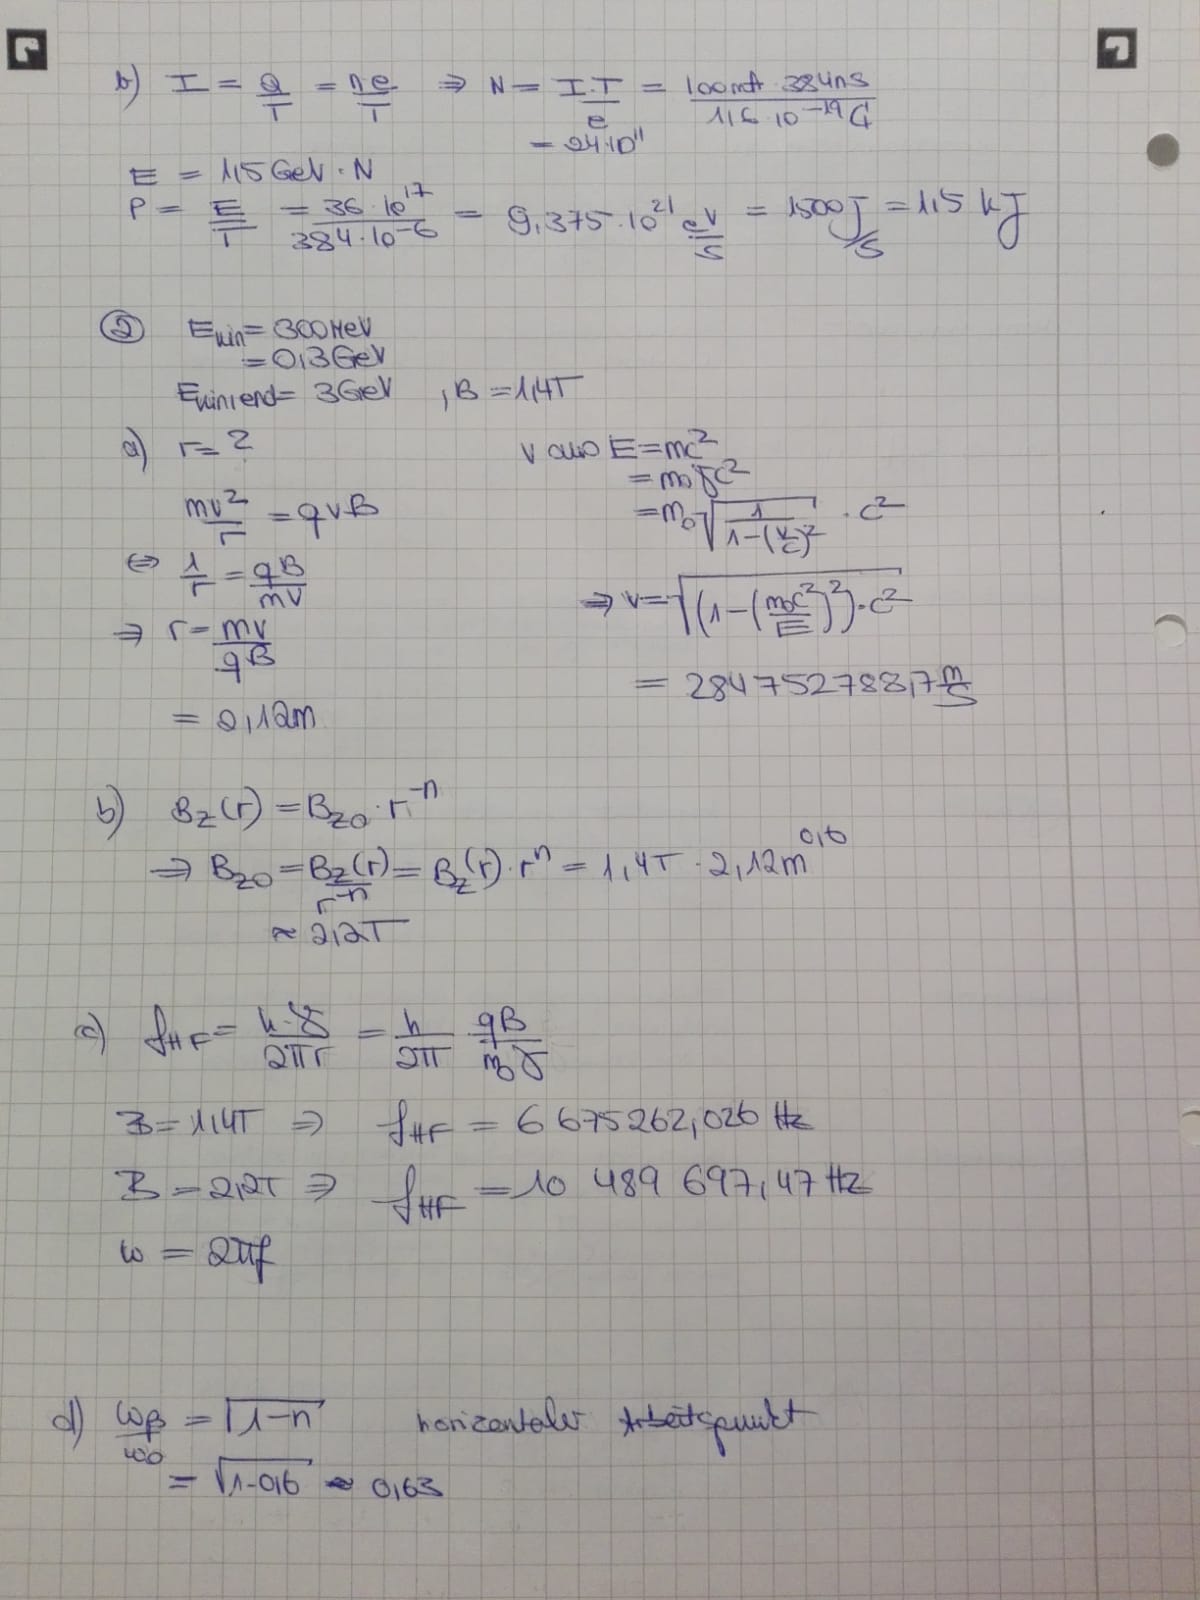 b) I = Q/T = n e/T ⇒ N = I·T/e = 100mA · 384ns / 1,6·10^-19 C
= 24·10^11
E = 1,5GeV · N
P = E/T = 36·10^17 / 384·10^-6 = 9,375·10^21 eV/s = 1500 J/s = 1,5 kJ
② E_kin = 300MeV
= 0,3GeV
E_kin,end = 3GeV , B = 1,4T
a) r = ? v aus E = mc²
= m₀γc²
mv²/r = qvB = m₀ √(1/(1-(v/c)²)) · c²
⇔ 1/r = qB/mv ⇒ v = √((1-(m₀c²/E)²)·c²)
⇒ r = mv/qB
= 284752788,7 m/s
= 2,12m
b) B_z(r) = B_z0 · r^-n
⇒ B_z0 = B_z(r)/r^-n = B_z(r)·r^n = 1,4T · 2,12m^0,6
≈ 2,2T
c) f_HF = /2πr = h/2π qB/m₀γ
B = 1,4T ⇒ f_HF = 6 675262,026 Hz
B = 2,2T ⇒ f_HF = 10 489 697,47 Hz
ω = 2πf
d) ω_β/ω₀ = √1-n horizontaler Arbeitspunkt
= √1-0,6 ≈ 0,63